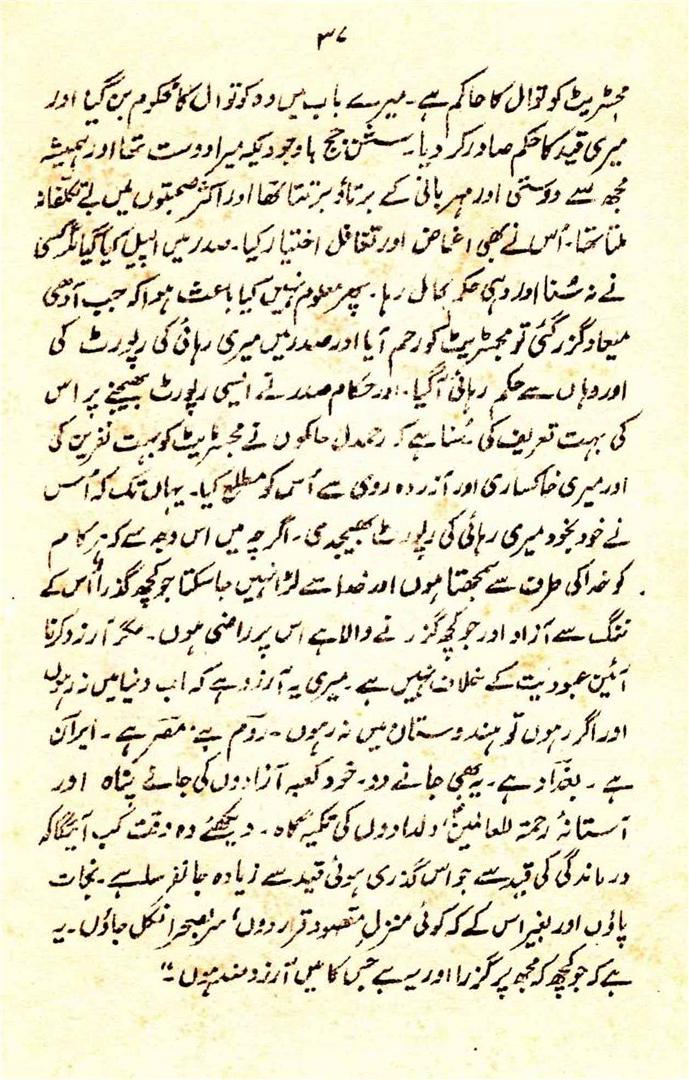 ۳۷
مجسٹریٹ کوتوال کا حاکم ہے۔ میرے باب میں وہ کوتوال کا محکوم بن گیا اور
میری قید کا حکم صادر کر دیا۔ سشن جج باوجودیکہ میرا دوست تھا اور ہمیشہ
مجھ سے دوستی اور مہربانی کے برتاؤ برتتا تھا اور اکثر صحبتوں میں بے تکلفانہ
ملتا تھا۔ اُس نے بھی اغماض اور تغافل اختیار کیا۔ صدر میں اپیل کیا گیا مگر کسی
نے نہ سُنا اور وہی حکم بحال رہا۔ پھر معلوم نہیں کیا باعث ہوا کہ جب آدھی
میعاد گزر گئی تو مجسٹریٹ کو رحم آیا اور صدر میں میری رہائی کی رپورٹ کی
اور وہاں سے حکم رہائی آ گیا۔ اور حکام صدر نے ایسی رپورٹ بھیجنے پر اس
کی بہت تعریف کی سُنا ہے کہ رحمدل حاکموں نے مجسٹریٹ کو بہت نفرین کی
اور میری خاکساری اور آزردہ روی سے اُس کو مطلع کیا۔ یہاں تک کہ اُس
نے خود بخود میری رہائی کی رپورٹ بھیجدی۔ اگرچہ میں اس وجہ سے کہ ہر کام
کو خدا کی طرف سے سمجھتا ہوں اور خدا سے لڑا نہیں جا سکتا جو کچھ گذرا اُس کے
ننگ سے آزاد اور جو کچھ گزرنے والا ہے اس پر راضی ہوں۔ مگر آرزو کرنا
آئین عبودیت کے خلاف نہیں ہے۔ میری یہ آرزو ہے کہ اب دنیا میں نہ رہوں
اور اگر رہوں تو ہندوستان میں نہ رہوں۔ روم ہے، مصر ہے۔ ایران
ہے۔ بغداد ہے۔ یہ بھی جانے دو۔ خود کعبہ آزادوں کی جائے پناہ اور
آستانۂ رحمۃ للعالمین دلدادوں کی تکیہ گاہ۔ دیکھئے وہ وقت کب آئیگا کہ
درماندگی کی قید سے جو اس گذری ہوئی قید سے زیادہ جانفرسا ہے۔ نجات
پاؤں اور بغیر اس کے کہ کوئی منزل مقصود قرار دوں، سر بصحرا نکل جاؤں۔ یہ
ہے کہ جو کچھ کہ مجھ پر گزرا اور یہ ہے جس کا میں آرزو مند ہوں۔"